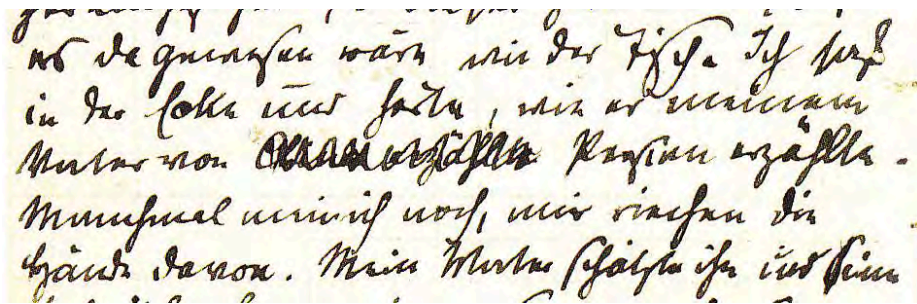 es dagewesen wäre wie der Tisch. Ich saß
in der Ecke und hörte, wie er meinem
Vater von Persien erzählte.
Manchmal mein ich noch, mir riechen die
Hände davon. Mein Vater schätzte ihn und seine